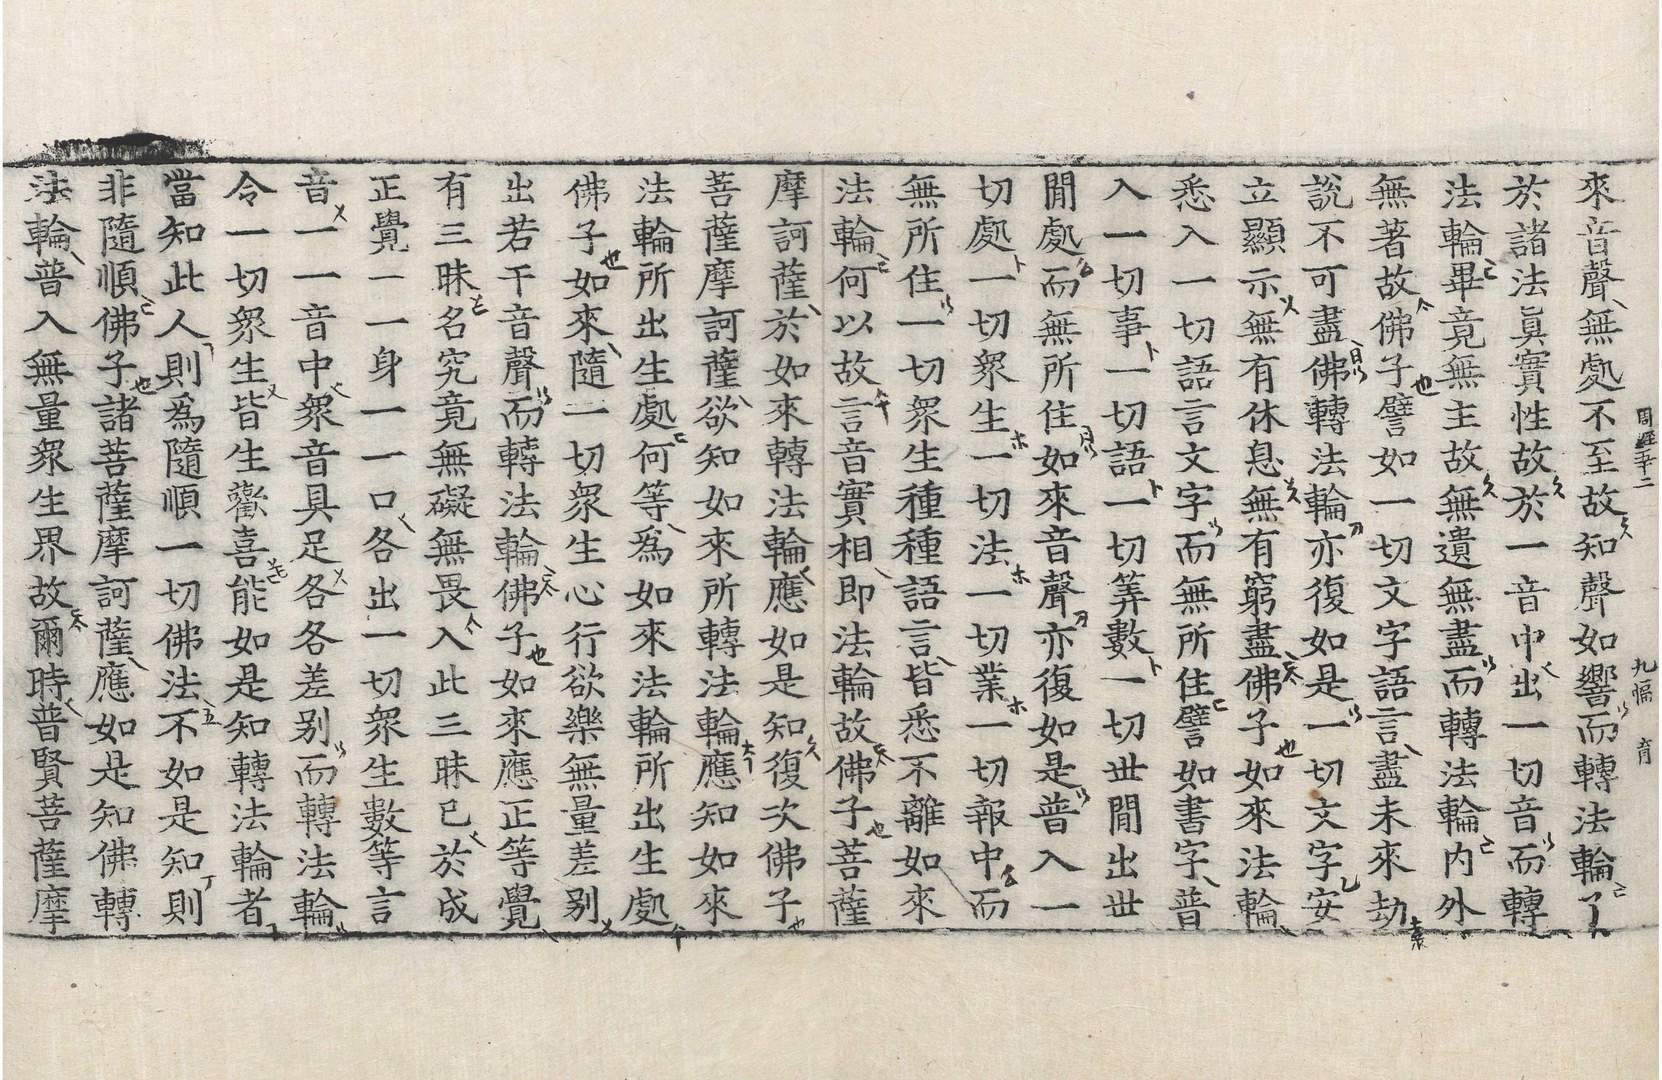 來音聲無處不至故知聲如響而轉法輪了
於諸法眞實性故於一音中出一切音而轉
法輪畢竟無主故無遺無盡而轉法輪內外
無著故佛子譬如一切文字語言盡未來劫
說不可盡佛轉法輪亦復如是一切文字安
立顯示無有休息無有窮盡佛子如來法輪
悉入一切語言文字而無所住譬如書字普
入一切事一切語一切筭數一切世間出世
間處而無所住如來音聲亦復如是普入一
切處一切眾生一切法一切業一切報中而
無所住一切眾生種種語言皆悉不離如來
法輪何以故言音實相即法輪故佛子菩薩
摩訶薩於如來轉法輪應如是知復次佛子
菩薩摩訶薩欲知如來所轉法輪應知如來
法輪所出生處何等爲如來法輪所出生處
佛子如來隨一切眾生心行欲樂無量差別
出若干音聲而轉法輪佛子如來應正等覺
有三昧名究竟無礙無畏入此三昧已於成
正覺一一身一一口各出一切眾生數等言
音一一音中眾音具足各各差別而轉法輪
令一切眾生皆生歡喜能如是知轉法輪者
當知此人則爲隨順一切佛法不如是知則
非隨順佛子諸菩薩摩訶薩應如是知佛轉
法輪普入無量眾生界故爾時普賢菩薩摩